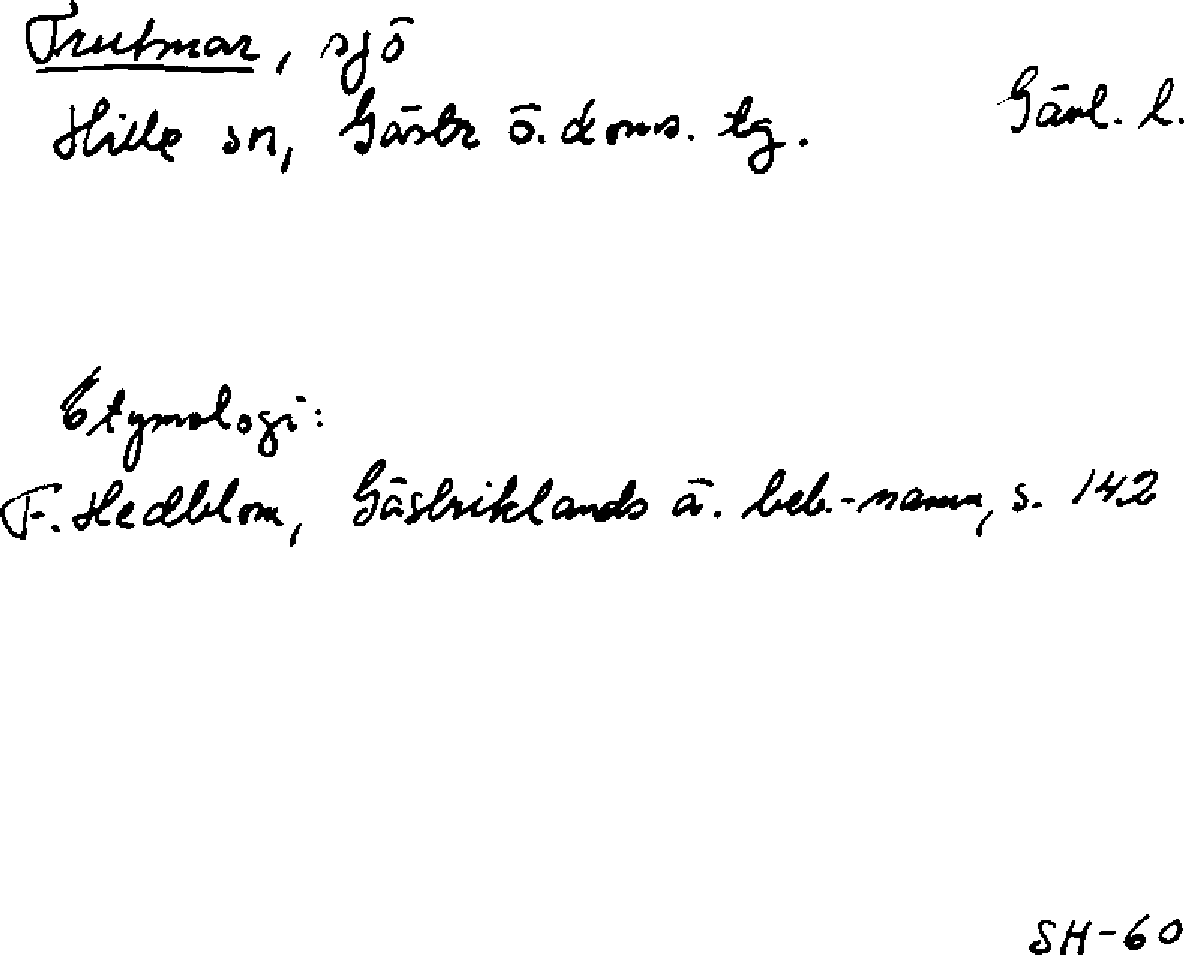 Trutmar, sjö
Hille sn, Gästr ö. doms. tg. Gävl. l.
Etymologi:
F. Hedblom, Gästriklands ä. beb.-namn, s. 142
SH-60